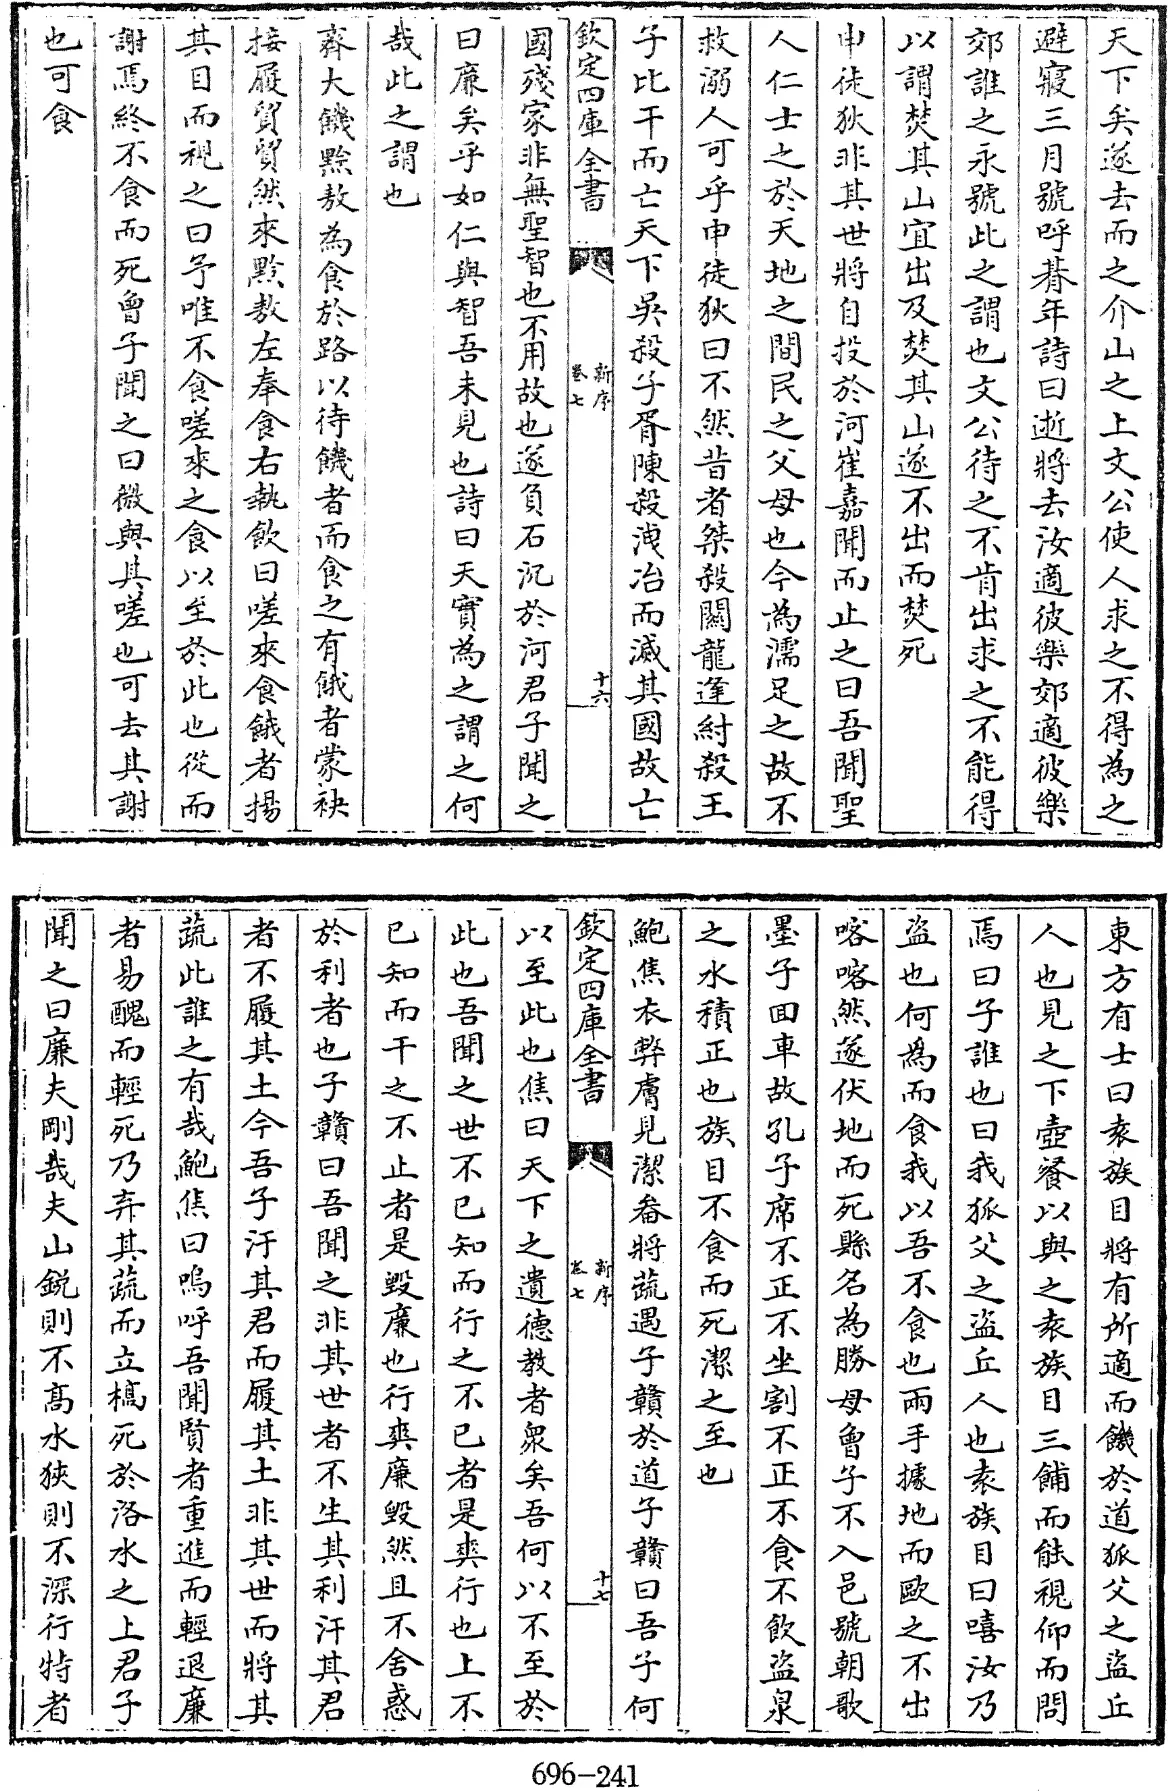 天下矣遂去而之介山之上文公使人求之不得為之
避寢三月號呼朞年詩曰逝將去汝適彼樂郊適彼樂
郊誰之永號此之謂也文公待之不肯出求之不能得
以謂焚其山宜出及焚其山遂不出而焚死
申徒狄非其世將自投於河崔嘉聞而止之曰吾聞聖
人仁士之於天地之間民之父母也今為濡足之故不
救溺人可乎申徒狄曰不然昔者桀殺關龍逢紂殺王
子比干而亡天下吳殺子胥陳殺洩冶而滅其國故亡
欽定四庫全書
新序
卷七
十六
國殘家非無聖智也不用故也遂負石沉於河君子聞之
曰廉矣乎如仁與智吾未見也詩曰天實為之謂之何
哉此之謂也
齊大饑黔敖為食於路以待饑者而食之有餓者蒙袂
接履貿貿然來黔敖左奉食右執飲曰嗟來食餓者揚
其目而視之曰予唯不食嗟來之食以至於此也從而
謝焉終不食而死曾子聞之曰微與其嗟也可去其謝
也可食
東方有士曰袁族目將有所適而饑於道狐父之盜丘
人也見之下壺餐以與之袁族目三餔而能視仰而問
焉曰子誰也曰我狐父之盜丘人也袁族目曰嘻汝乃
盜也何為而食我以吾不食也兩手據地而歐之不出
喀喀然遂伏地而死縣名為勝母曾子不入邑號朝歌
墨子回車故孔子席不正不坐割不正不食不飲盜泉
之水積正也族目不食而死潔之至也
鮑焦衣弊膚見潔畚將蔬遇子贛於道子贛曰吾子何
欽定四庫全書
新序
卷七
十七
以至此也焦曰天下之遺德教者衆矣吾何以不至於
此也吾聞之世不已知而行之不已者是爽行也上不
已知而干之不止者是毀廉也行爽廉毀然且不舍惑
於利者也子贛曰吾聞之非其世者不生其利汙其君
者不履其土今吾子汙其君而履其土非其世而將其
蔬此誰之有哉鮑焦曰嗚呼吾聞賢者重進而輕退廉
者易醜而輕死乃弃其蔬而立槁死於洛水之上君子
聞之曰廉夫剛哉夫山銳則不高水狹則不深行特者
696-241